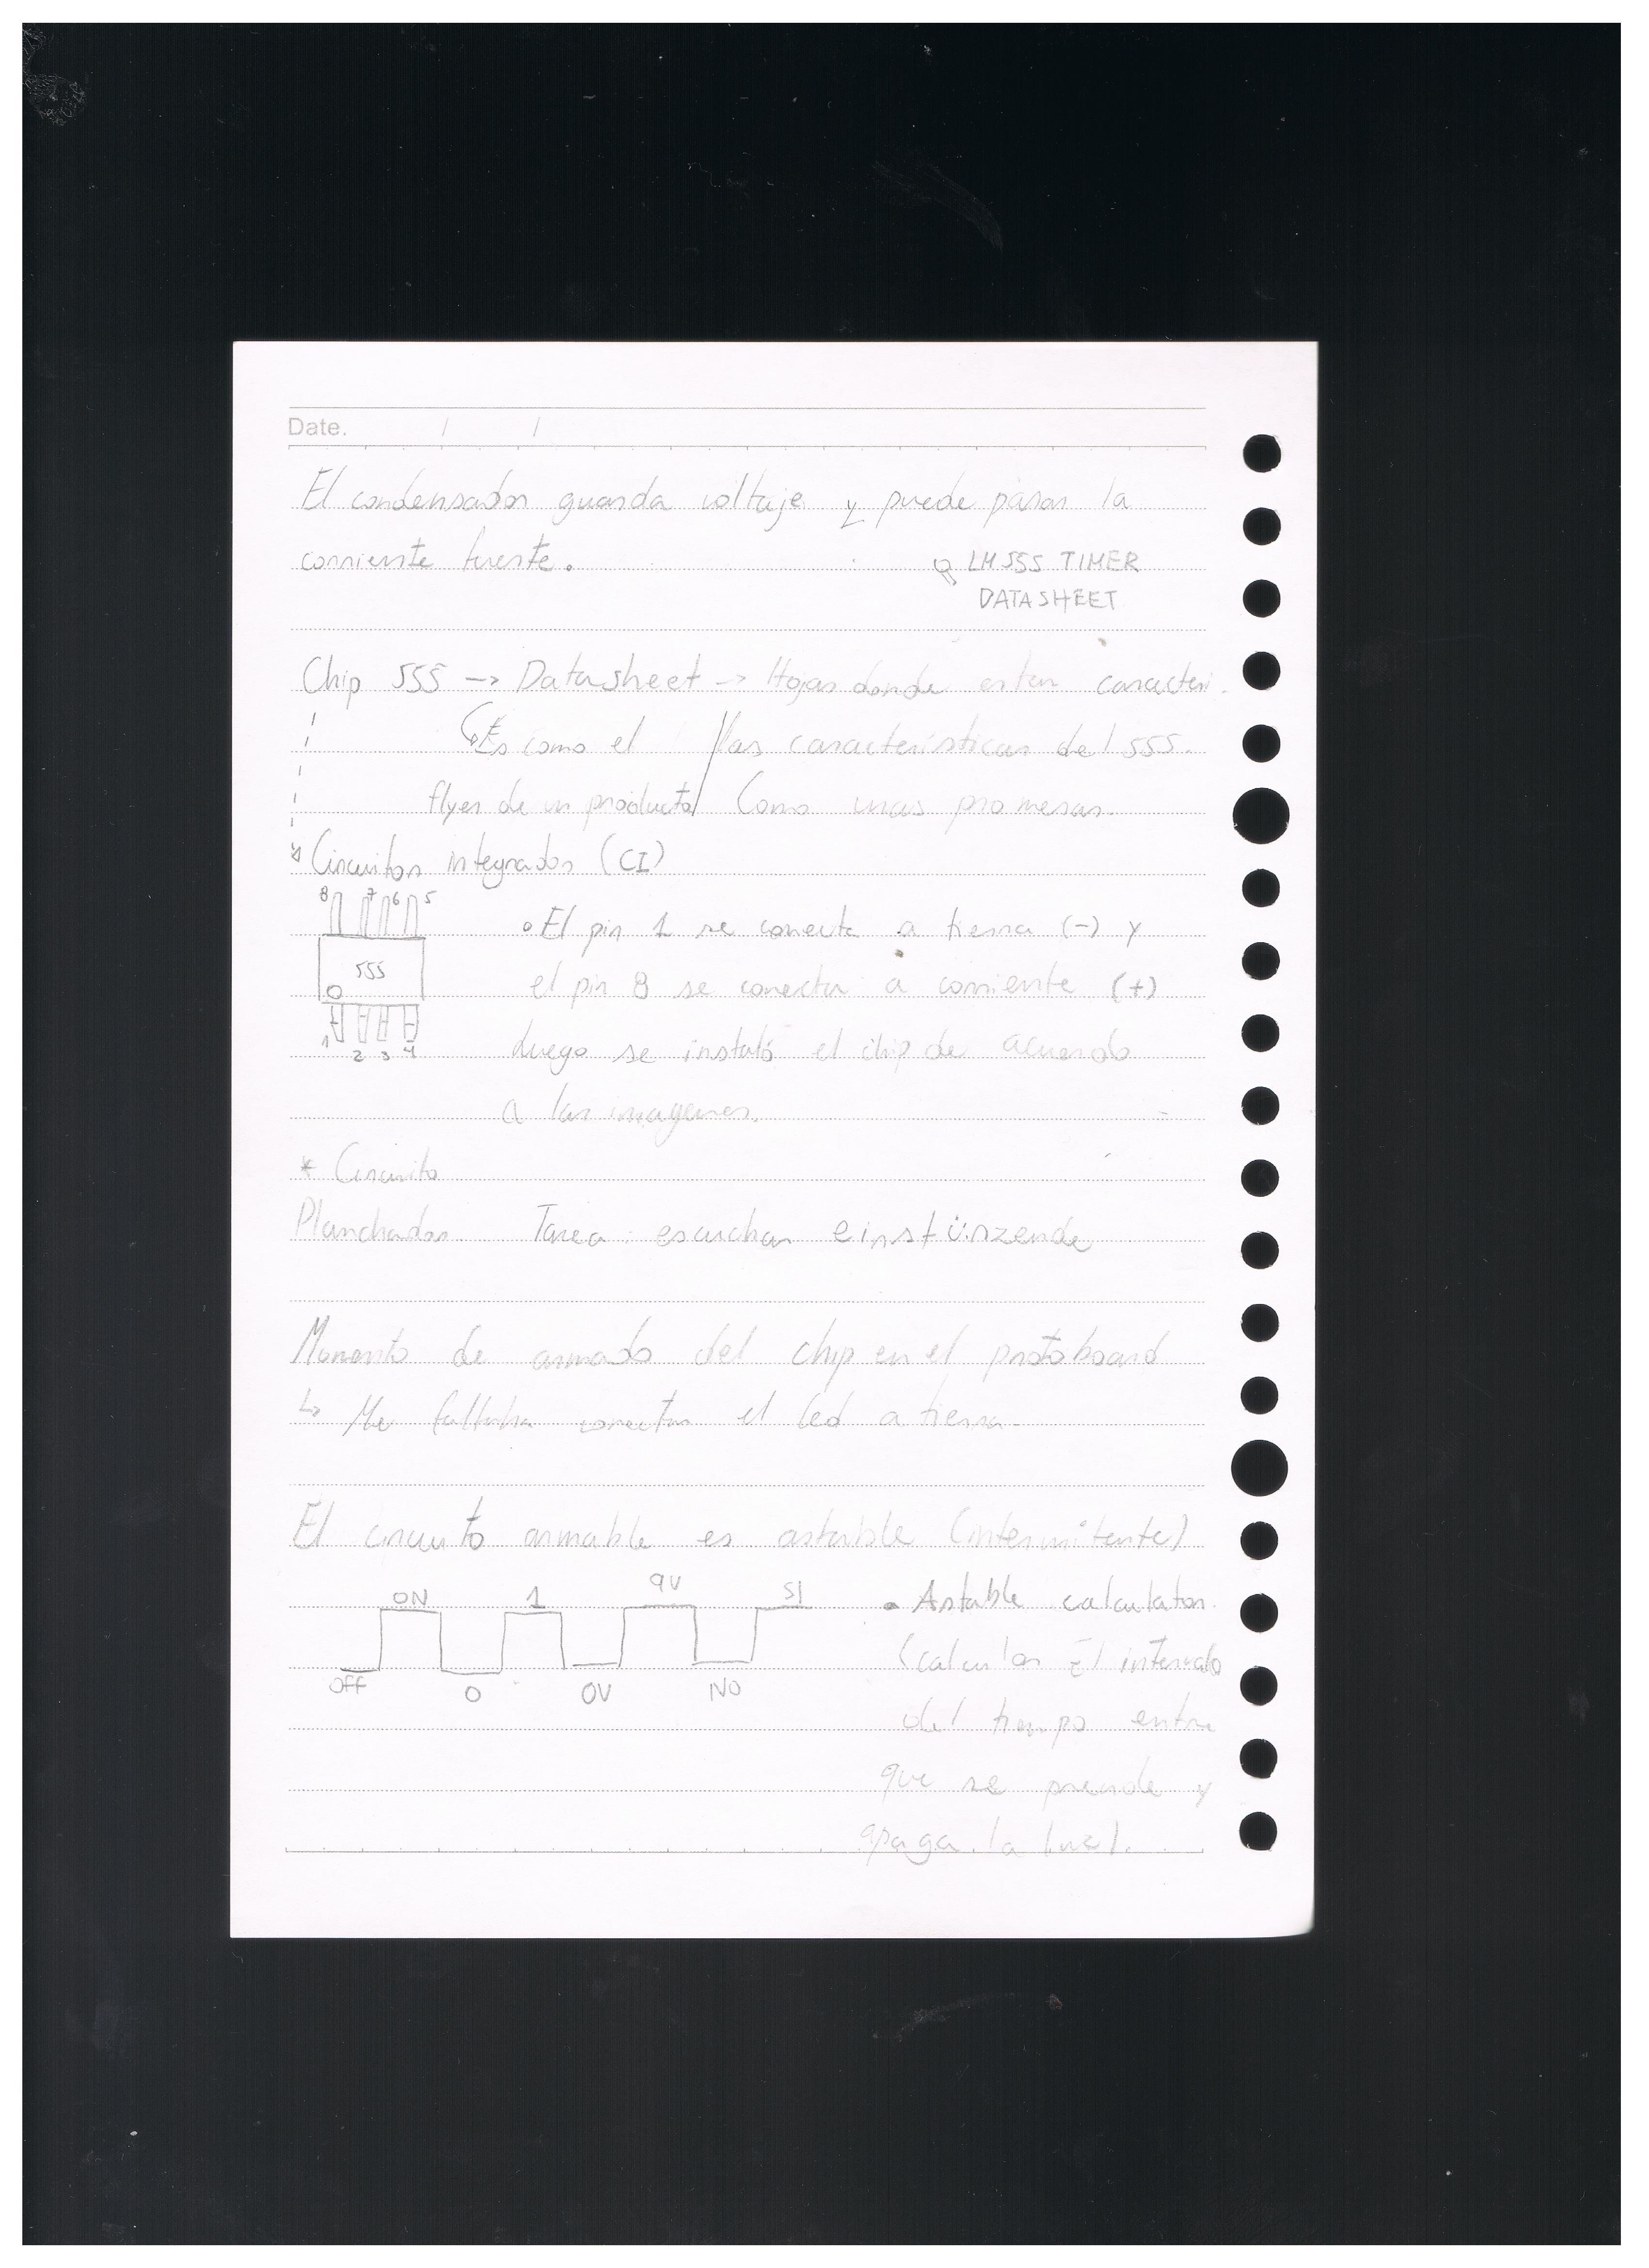 Date. / /
El condensador guarda voltaje y puede pasar la
corriente fuerte.
LM555 TIMER
DATASHEET
Chip 555 -> Datasheet -> Hojas donde estan caracteri.
Es como el / las características del 555.
flyer de un producto / Como unas promesas.
Circuitos integrados (CI)
8 7 6 5
555
1 2 3 4
• El pin 1 se conecta a tierra (-) y
el pin 8 se conecta a corriente (+)
Luego se instaló el chip de acuerdo
a las imagenes.
* Circuito
Planchador Tarea: escuchar einstürzende
Momento de armado del chip en el protoboard
↳ Me faltaba conectar el led a tierra.
El circuito armable es astable (intermitente)
ON 1 9V SI
OFF 0 0V NO
• Astable calculator.
(calcular El intervalo
del tiempo entre
que se prende y
apaga la luz).